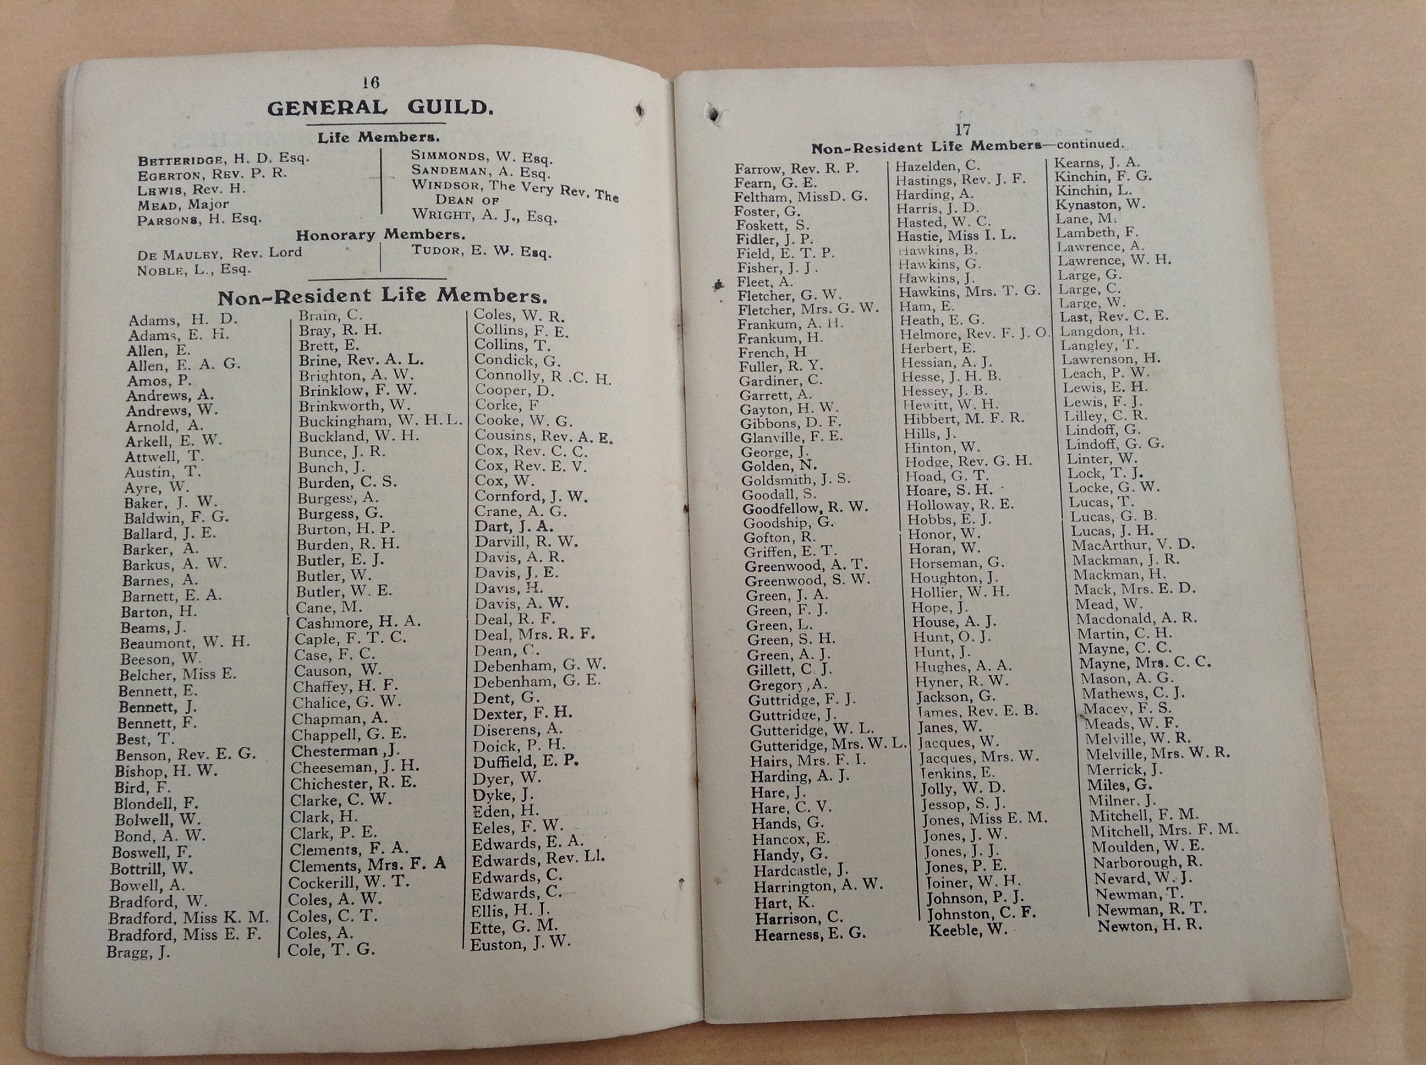 16
GENERAL GUILD.
Life Members.
BETTERIDGE, H. D. Esq.
EGERTON, Rev. P. R.
LEWIS, Rev. H.
MEAD, Major
PARSONS, H. Esq.
SIMMONDS, W. Esq.
SANDEMAN, A. Esq.
WINDSOR, The Very Rev. The
DEAN OF
WRIGHT, A. J., Esq.
Honorary Members.
DE MAULEY, Rev. Lord
NOBLE, L., Esq.
TUDOR, E. W. Esq.
Non-Resident Life Members.
Adams, H. D.
Adams, E. H.
Allen, E.
Allen, E. A. G.
Amos, P.
Andrews, A.
Andrews, W.
Arnold, A.
Arkell, E. W.
Attwell, T.
Austin, T.
Ayre, W.
Baker, J. W.
Baldwin, F. G.
Ballard, J. E.
Barker, A.
Barkus, A. W.
Barnes, A.
Barnett, E. A.
Barton, H.
Beams, J.
Beaumont, W. H.
Beeson, W.
Belcher, Miss E.
Bennett, E.
Bennett, J.
Bennett, F.
Best, T.
Benson, Rev. E. G.
Bishop, H. W.
Bird, F.
Blondell, F.
Bolwell, W.
Bond, A. W.
Boswell, F.
Bottrill, W.
Bowell, A.
Bradford, W.
Bradford, Miss K. M.
Bradford, Miss E. F.
Bragg, J.
Brain, C.
Bray, R. H.
Brett, E.
Brine, Rev. A. L.
Brighton, A. W.
Brinklow, F. W.
Brinkworth, W.
Buckingham, W. H. L.
Buckland, W. H.
Bunce, J. R.
Bunch, J.
Burden, C. S.
Burgess, A.
Burgess, G.
Burton, H. P.
Burden, R. H.
Butler, E. J.
Butler, W.
Butler, W. E.
Cane, M.
Cashmore, H. A.
Caple, F. T. C.
Case, F. C.
Causon, W.
Chaffey, H. F.
Chalice, G. W.
Chapman, A.
Chappell, G. E.
Chesterman ,J.
Cheeseman, J. H.
Chichester, R. E.
Clarke, C. W.
Clark, H.
Clark, P. E.
Clements, F. A.
Clements, Mrs. F. A
Cockerill, W. T.
Coles, A. W.
Coles, C. T.
Coles, A.
Cole, T. G.
Coles, W. R.
Collins, F. E.
Collins, T.
Condick, G.
Connolly, R .C. H.
Cooper, D.
Corke, F
Cooke, W. G.
Cousins, Rev. A. E.
Cox, Rev. C. C.
Cox, Rev. E. V.
Cox, W.
Cornford, J. W.
Crane, A. G.
Dart, J. A.
Darvill, R. W.
Davis, A. R.
Davis, J. E.
Davis, H.
Davis, A. W.
Deal, R. F.
Deal, Mrs. R. F.
Dean, C.
Debenham, G. W.
Debenham, G. E.
Dent, G.
Dexter, F. H.
Diserens, A.
Doick, P. H.
Duffield, E. P.
Dyer, W.
Dyke, J.
Eden, H.
Eeles, F. W.
Edwards, E. A.
Edwards, Rev. Ll.
Edwards, C.
Edwards, C.
Ellis, H. J.
Ette, G. M.
Euston, J. W.
17
Non-Resident Life Members—continued.
Farrow, Rev. R. P.
Fearn, G. E.
Feltham, MissD. G.
Foster, G.
Foskett, S.
Fidler, J. P.
Field, E. T. P.
Fisher, J. J.
Fleet, A.
Fletcher, G. W.
Fletcher, Mrs. G. W.
Frankum, A. H.
Frankum, H.
French, H
Fuller, R. Y.
Gardiner, C.
Garrett, A.
Gayton, H. W.
Gibbons, D. F.
Glanville, F. E.
George, J.
Golden, N.
Goldsmith, J. S.
Goodall, S.
Goodfellow, R. W.
Goodship, G.
Gofton, R.
Griffen, E. T.
Greenwood, A. T.
Greenwood, S. W.
Green, J. A.
Green, F. J.
Green, L.
Green, S. H.
Green, A. J.
Gillett, C. J.
Gregory ,A.
Guttridge, F. J.
Guttridge, J.
Gutteridge, W. L.
Gutteridge, Mrs. W. L.
Hairs, Mrs. F. I.
Harding, A. J.
Hare, J.
Hare, C. V.
Hands, G.
Hancox, E.
Handy, G.
Hardcastle, J.
Harrington, A. W.
Hart, K.
Harrison, C.
Hearness, E. G.
Hazelden, C.
Hastings, Rev. J. F.
Harding, A.
Harris, J. D.
Hasted, W. C.
Hastie, Miss I. L.
Hawkins, B.
Hawkins, G.
Hawkins, J.
Hawkins, Mrs. T. G.
Ham, E.
Heath, E. G.
Helmore, Rev. F. J. O.
Herbert, E.
Hessian, A. J.
Hesse, J. H. B.
Hessey, J. B.
Hewitt, W. H.
Hibbert, M. F. R.
Hills, J.
Hinton, W.
Hodge, Rev. G. H.
Hoad, G. T.
Hoare, S. H.
Holloway, R. E.
Hobbs, E. J.
Honor, W.
Horan, W.
Horseman, G.
Houghton, J.
Hollier, W. H.
Hope, J.
House, A. J.
Hunt, O. J.
Hunt, J.
Hughes, A. A.
Hyner, R. W.
Jackson, G.
James, Rev. E. B.
Janes, W.
Jacques, W.
Jacques, Mrs. W.
Jenkins, E.
Jolly, W. D.
Jessop, S. J.
Jones, Miss E. M.
Jones, J. W.
Jones, J. J.
Jones, P. E.
Joiner, W. H.
Johnson, P. J.
Johnston, C. F.
Keeble, W.
Kearns, J. A.
Kinchin, F. G.
Kinchin, L.
Kynaston, W.
Lane, M.
Lambeth, F.
Lawrence, A.
Lawrence, W. H.
Large, G.
Large, C.
Large, W.
Last, Rev. C. E.
Langdon, H.
Langley, T.
Lawrenson, H.
Leach, P. W.
Lewis, E. H.
Lewis, F. J.
Lilley, C. R.
Lindoff, G.
Lindoff, G. G.
Linter, W.
Lock, T. J.
Locke, G. W.
Lucas, T.
Lucas, G. B.
Lucas, J. H.
MacArthur, V. D.
Mackman, J. R.
Mackman, H.
Mack, Mrs. E. D.
Mead, W.
Macdonald, A. R.
Martin, C. H.
Mayne, C. C.
Mayne, Mrs. C. C.
Mason, A. G.
Mathews, C. J.
Macey, F. S.
Meads, W. F.
Melville, W. R.
Melville, Mrs. W. R.
Merrick, J.
Miles, G.
Milner. J.
Mitchell, F. M.
Mitchell, Mrs. F. M.
Moulden, W. E.
Narborough, R.
Nevard, W. J.
Newman, T.
Newman, R. T.
Newton, H. R.